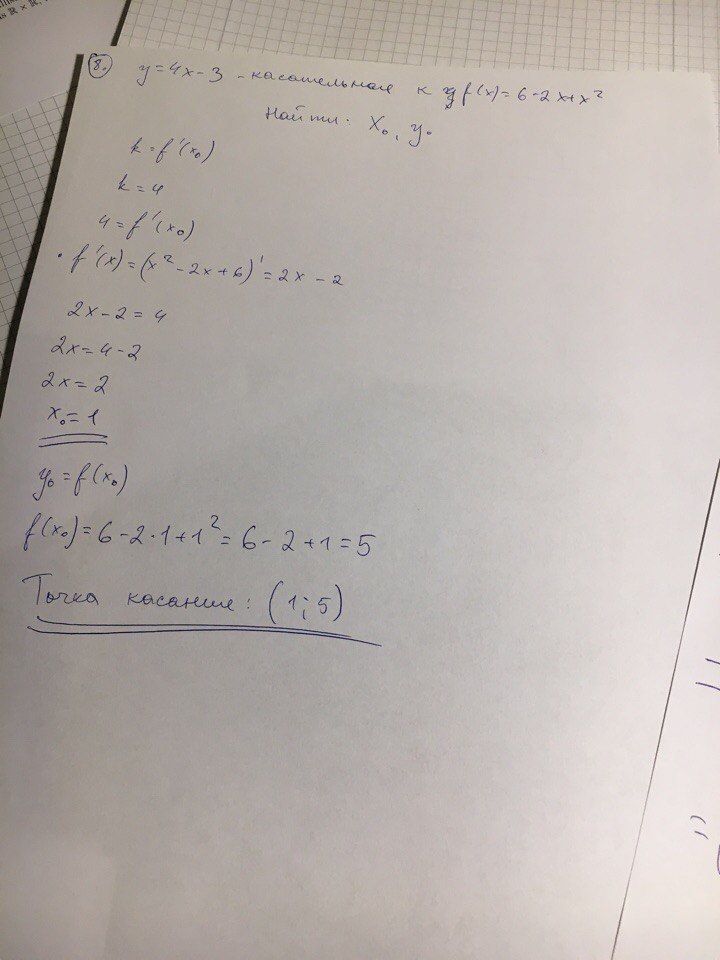 8. y=4x-3 - касательная к f(x)=6-2x+x²
Найти: x₀, y₀
k=f'(x₀)
k=4
4=f'(x₀)
• f'(x)=(x²-2x+6)'=2x-2
2x-2=4
2x=4-2
2x=2
x₀=1
y₀=f(x₀)
f(x₀)=6-2·1+1²=6-2+1=5
Точка касание: (1;5)